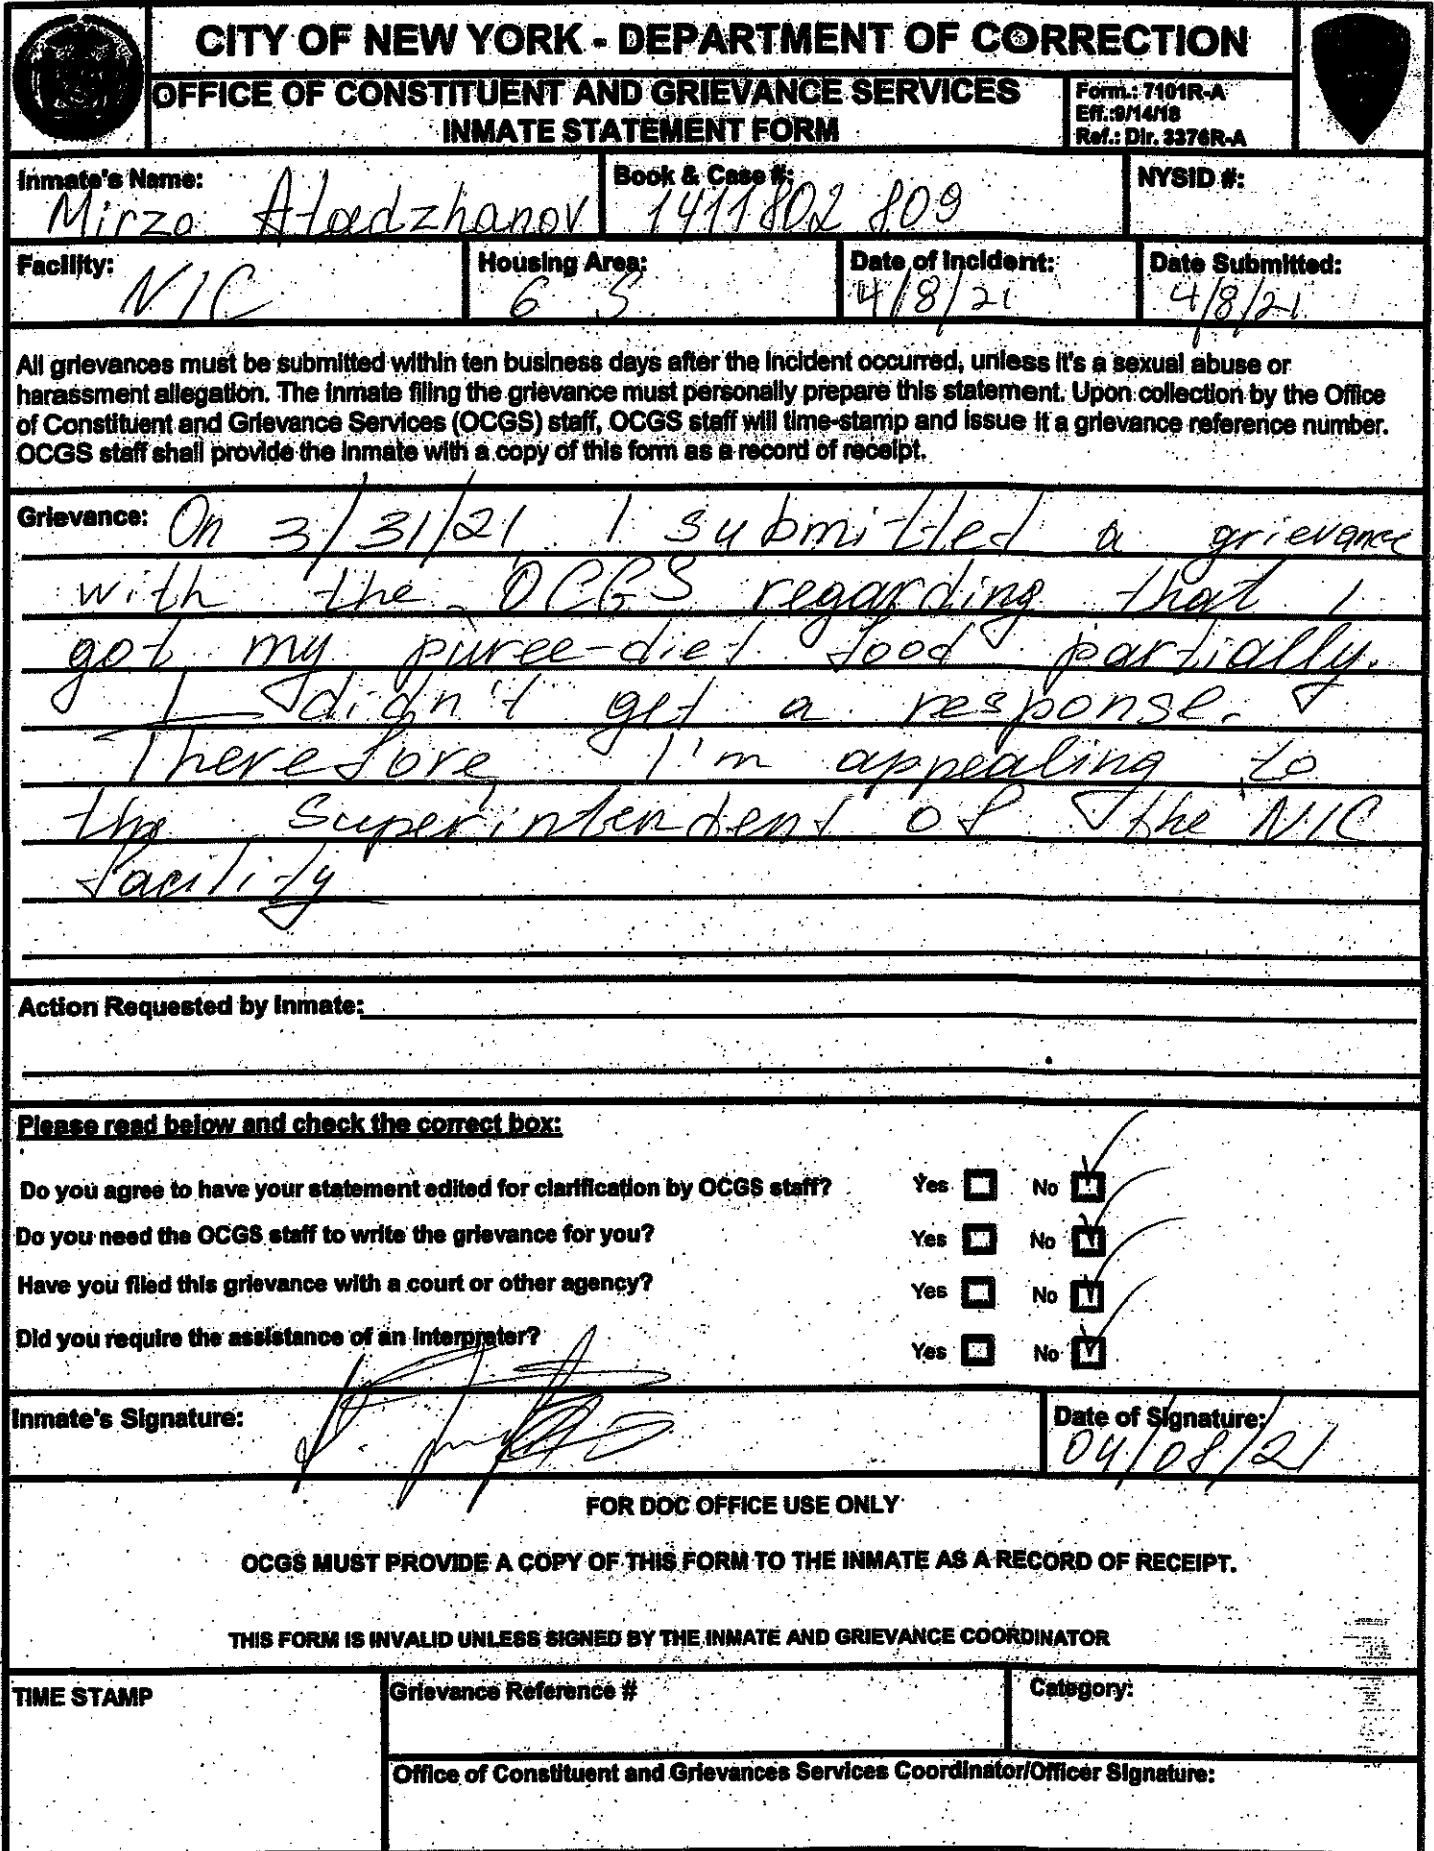 CITY OF NEW YORK - DEPARTMENT OF CORRECTION
OFFICE OF CONSTITUENT AND GRIEVANCE SERVICES
INMATE STATEMENT FORM
Form.: 7101R-A
Eff.:9/14/18
Ref.: Dir. 3376R-A
Inmate's Name: Mirzo Atadzhanov
Book & Case #: 1411802809
NYSID #:
Facility: NIC
Housing Area: 6 S
Date of Incident: 4/8/21
Date Submitted: 4/8/21
All grievances must be submitted within ten business days after the incident occurred, unless it's a sexual abuse or
harassment allegation. The inmate filing the grievance must personally prepare this statement. Upon collection by the Office
of Constituent and Grievance Services (OCGS) staff, OCGS staff will time-stamp and issue it a grievance reference number.
OCGS staff shall provide the inmate with a copy of this form as a record of receipt.
Grievance: On 3/31/21 I submitted a grievance
with the OCGS regarding that I
got my puree-diet food partially.
I didn't get a response.
Therefore I'm appealing to
the Superintendent of the NIC
facility
Action Requested by Inmate:
Please read below and check the correct box:
Do you agree to have your statement edited for clarification by OCGS staff? Yes No
Do you need the OCGS staff to write the grievance for you? Yes No
Have you filed this grievance with a court or other agency? Yes No
Did you require the assistance of an interpreter? Yes No
Inmate's Signature:
Date of Signature: 04/08/21
FOR DOC OFFICE USE ONLY
OCGS MUST PROVIDE A COPY OF THIS FORM TO THE INMATE AS A RECORD OF RECEIPT.
THIS FORM IS INVALID UNLESS SIGNED BY THE INMATE AND GRIEVANCE COORDINATOR
TIME STAMP
Grievance Reference #
Category:
Office of Constituent and Grievances Services Coordinator/Officer Signature: